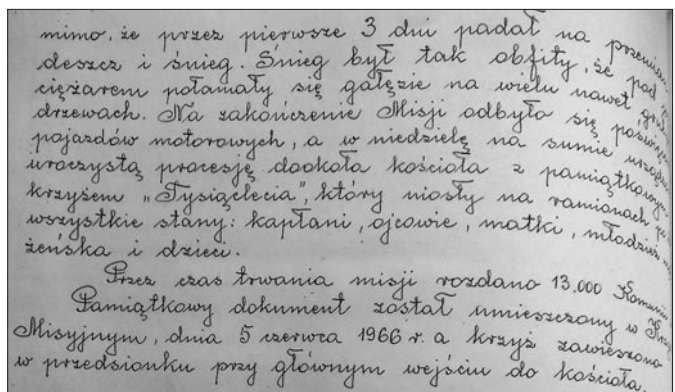 mimo, że przez pierwsze 3 dni padał na przemian
deszcz i śnieg. Śnieg był tak obfity, że pod
ciężarem połamały się gałęzie na wielu nawet
drzewach. Na zakończenie Misji odbyło się
pojazdów motorowych, a w niedzielę na sumie
uroczystą procesję dookoła kościoła z
krzyżem „Tysiąclecia", który niosły na ramionach
wszystkie stany: kapłani, ojcowie, matki, młodzież
żeńska i dzieci.
Przez czas trwania misji rozdano 13.000
Pamiątkowy dokument został umieszczony w
Misyjnym, dnia 5 czerwca 1966 r. a krzyż zawieszono
w przedsionku przy głównym wejściu do kościoła.